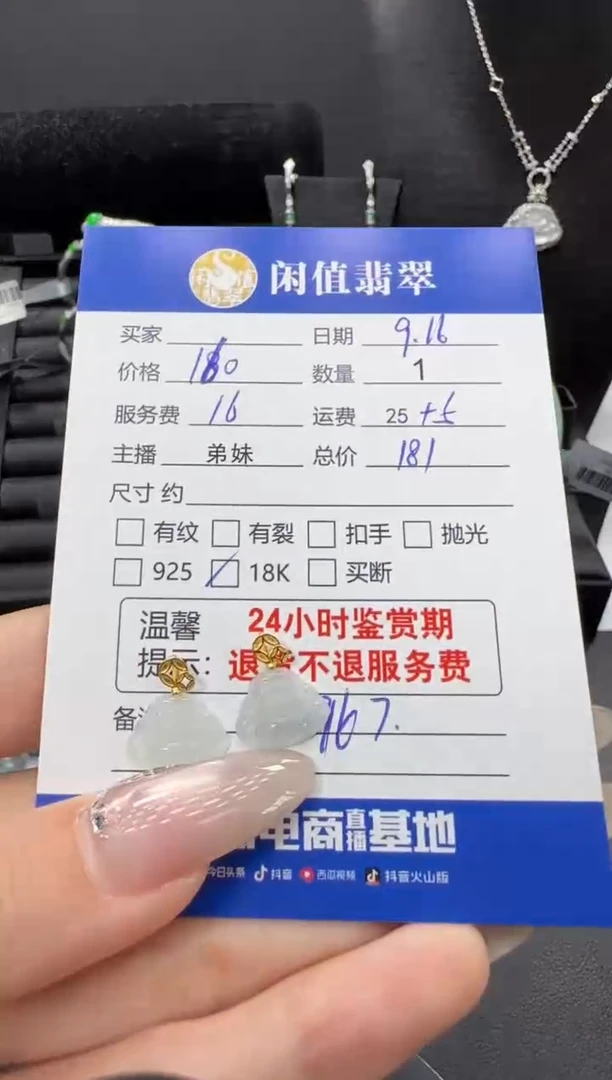 闲值翡翠
买家 日期 9.16
价格 180 数量 1
服务费 16 运费 25 +5
主播 弟妹 总价 181
尺寸 约
有纹 有裂 扣手 抛光
925 18K 买断
温馨 24小时鉴赏期
提示: 退 不退服务费
备 767.
电商直播基地
今日头条 抖音 西瓜视频 抖音火山版